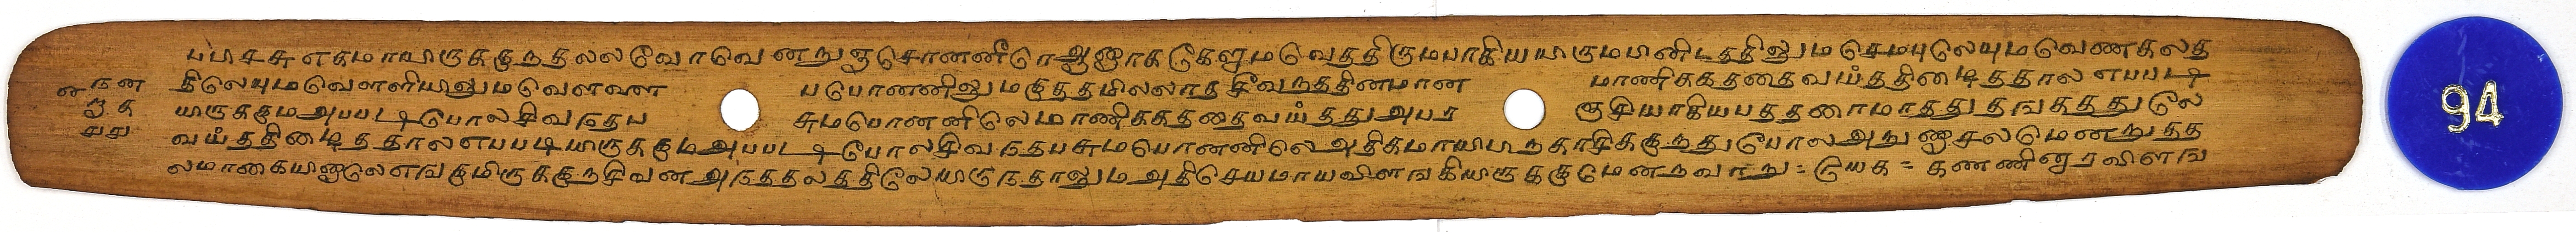 பபிசசு எகமாயிருககுநதலலவோவெனறுஞசொனனீரெ ஆனாக கேளுமவெததிருமபாகியயிருமபினிடததிலும செமபுலேயும வெணகலத
திலேயுமவெளளியிலுமவெளவன படுபொணணிலுமகுததமிலலாத சீவநததினமான மாணிககததைவயததிழைததால எபபடி
யிருககும அபபடிபோலசிவநதப சுமபொனனிலெமாணிககததைவயதது அபர ஞசியாகியபததரைமாதது தஙகதது லே
வயததிழைததால எபபடியிருககும அபபடிபோலசிவநதபசுமபொனனிலெ அதிகமாயிபிறகாசிககுநது போல அறுணாசலமெனறுதத
லமாகையினாலெ எஙகுமிருககுநசிவன அநததலததிலேயிருநதாலும அதிசெயமாயவிளஙகியிருககுமெனறவாறு = யக = கணணினூரவிளங
94